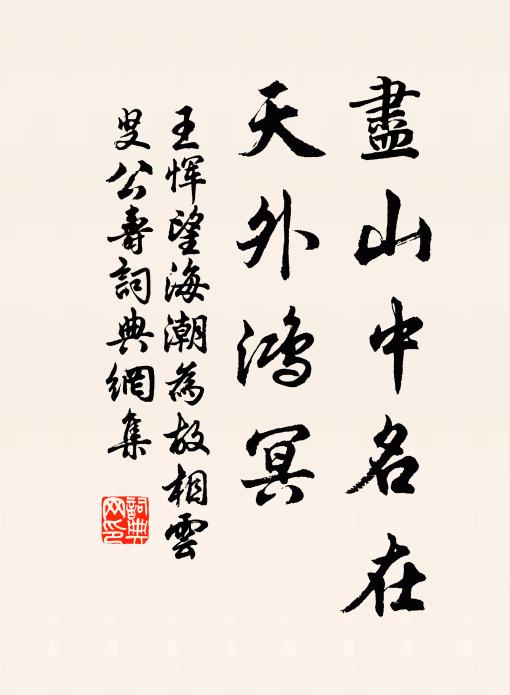 盡山中名在
天外鴻冥
王惲望海潮為故相雲
叟公壽詞典網集
詞典网印